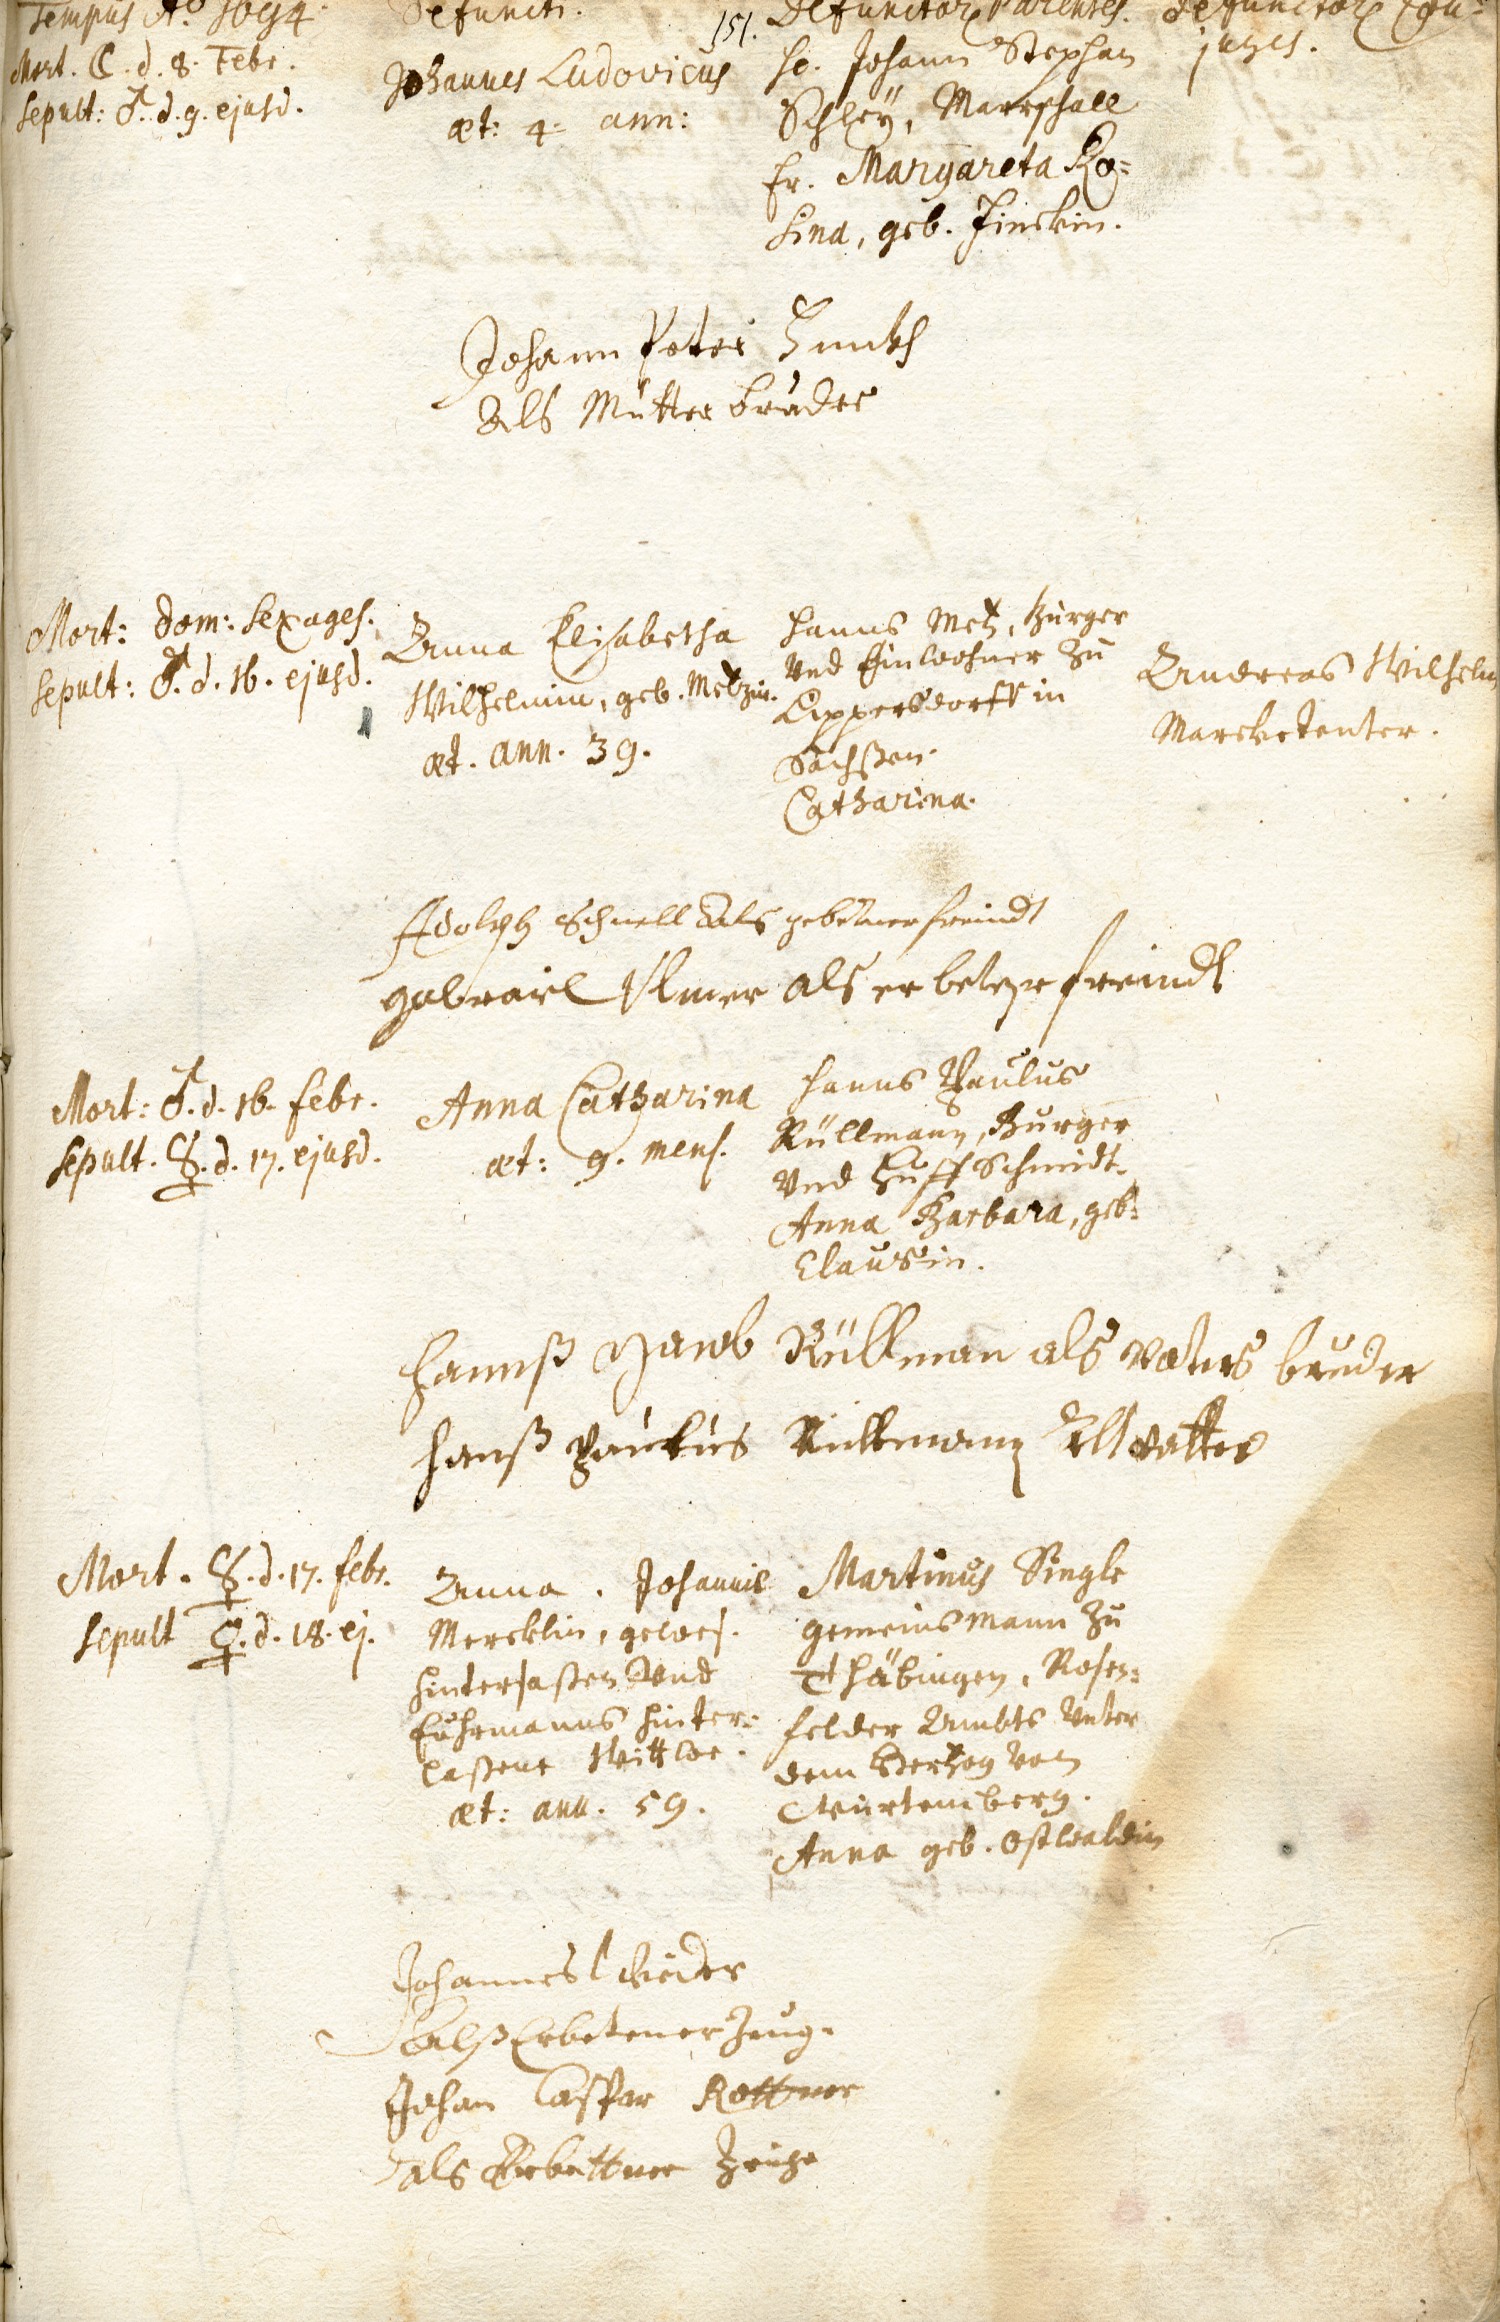 Tempus Aº 1694.
Defuncti.
151.
Defunctor. Parentes.
Defunctor. Con-
juges.
Mort. ☾. d. 8. Febr.
Sepult: ♂. d. 9. ejusd.
Johannes Ludovicus
æt: 4. ann:
Hr. Johann Stephan
Schleÿ, Marschall
Fr. Margareta Ro-
sina, geb. Zinckin.
Johann Peter Zinckh
Als Mutter bruder
Mort: Dom: Sexages.
Sepult: ♂. d. 16. ejusd.
Anna Elisabetha
Wilhelmin, geb. Metzin.
æt. ann. 39.
Hanns Metz, Burger
Vnd Einwohner zu
Lippersdorff in
Sachßen.
Catharina.
Andreas Wilhelm
Marcketenter.
Adolph Schnell Als gebetner freindt
gabrail Ulmer als erbeter freindt
Mort: ♂. d. 16. Febr.
Sepult. ☿. d. 17. ejusd.
Anna Catharina
æt: 9. mens.
Hanns Paulus
Rüllmann, Burger
Vnd Huff Schmidt.
Anna Barbara, geb.
Clausin.
Hannß Jacob Rüllman als Vatters bruder
Hanß Paulus Rüllmann Alt vatter
Mort. ☿. d. 17. Febr.
Sepult ♃. d. 18. ej.
Anna. Johannis
Mercklin, gewes.
Hintersaßen Vnd
Fuhrmanns hinter-
laßene Wittwe.
æt: ann. 59.
Martinus Single
Gemeinsmann zu
Thäbingen, Rosen-
felder Ambts Vnter
dem Hertzog Von
Würtemberg.
Anna geb. Ostwaldin
Johannes
Alß Erbetener Zeug.
Johan Caspar Rottner
als Erbettner Zeuge